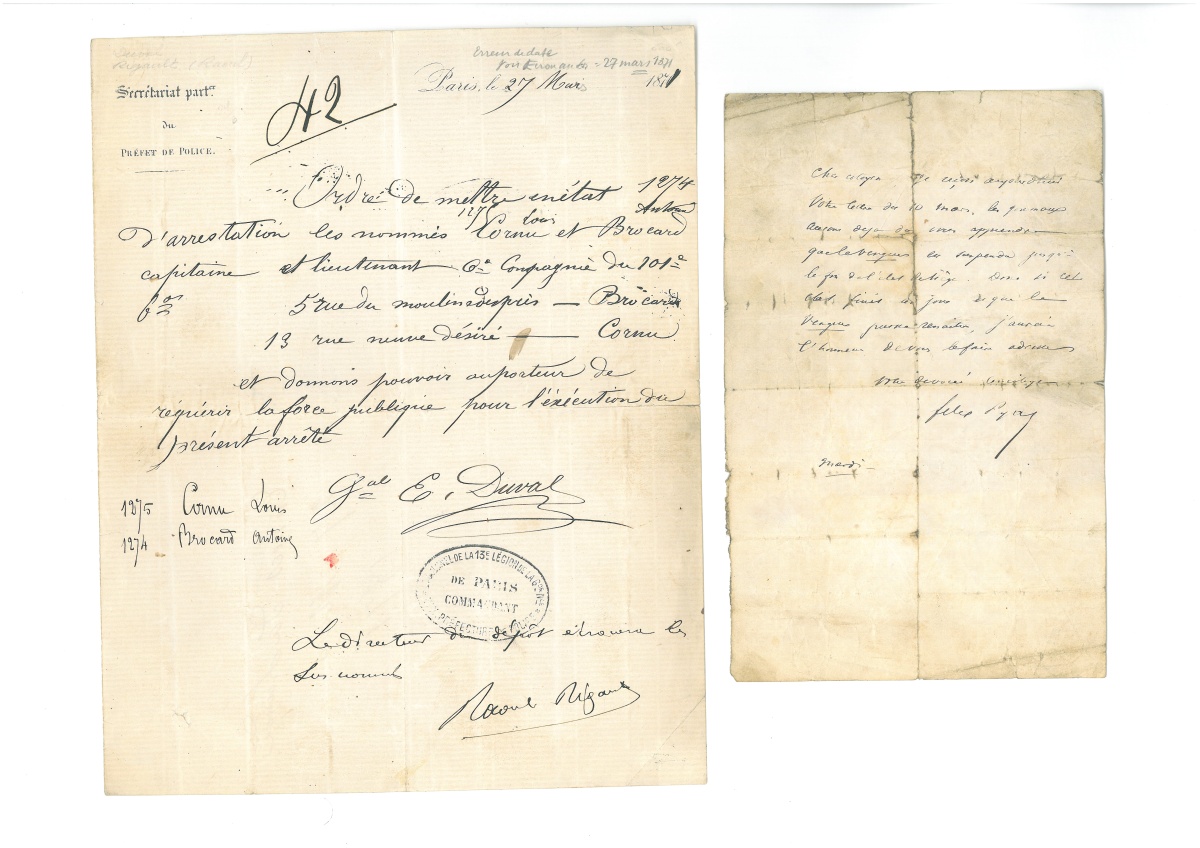 Rigault (Raoul)
Erreur de date
27 mars 1871
Secrétariat part.er
du
PRÉFET DE POLICE.
42
Paris, le 27 Mars 1871
Ordre de mettre en état 1274
1275 Louis Antoine
d'arrestation les nommés Cornu et Brocard
capitaine et lieutenant 6e Compagnie du 101e
5 rue du moulin des prés — Brocard
13 rue neuve désiré — Cornu
et donnons pouvoir au porteur de
réquérir la force publique pour l'éxécution du
présent arrêté
Gal E. Duval
1275 Cornu Louis
1274 Brocard Antoine
DE LA 13E LÉGION DE LA
DE PARIS
COMMANDANT
PRÉFECTURE DE POLICE
Le directeur du dépôt écrouera les
sus nommés
Raoul Rigault
Cher citoyen je reçois aujourd'hui
votre lettre du 10 mars. les journaux
auront déjà dû vous apprendre
que le Vengeur est suspendu jusqu'à
la fin de l'état de siège. Dès
jours que le
Vengeur pourra renaître, j'aurai
l'honneur de vous le faire adresser
votre dévoué concitoyen
felix Pyat
mardi